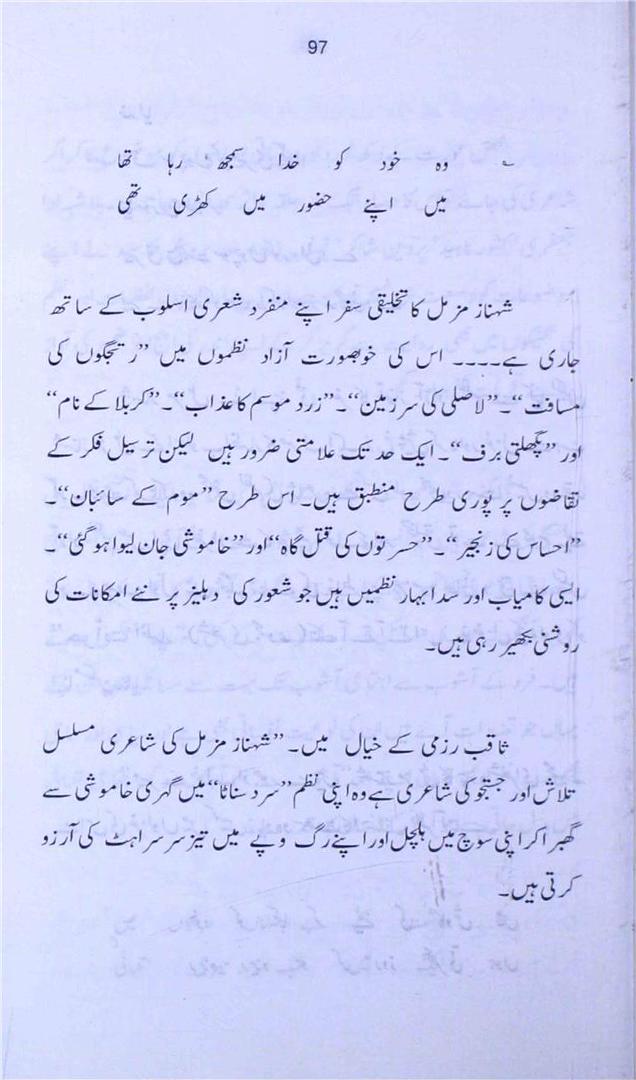 97
؎ وہ خود کو خدا سمجھ رہا تھا
میں اپنے حضور میں کھڑی تھی
شہناز مزمل کا تخلیقی سفر اپنے منفرد شعری اسلوب کے ساتھ
جاری ہے۔۔۔۔ اس کی خوبصورت آزاد نظموں میں ”رتجگوں کی
مسافت“۔”لاصلی کی سرزمین“۔”زرد موسم کا عذاب“۔”کربلا کے نام“
اور ”پگھلتی برف“۔ ایک حد تک علامتی ضرور ہیں لیکن ترسیل فکر کے
تقاضوں پر پوری طرح منطبق ہیں۔ اس طرح ”موم کے سائبان“۔
”احساس کی زنجیر“۔”حسرتوں کی قتل گاہ“ اور ”خاموشی جان لیوا ہو گئی“۔
ایسی کامیاب اور سدا بہار نظمیں ہیں جو شعور کی دہلیز پر نئے امکانات کی
روشنی بکھیر رہی ہیں۔
ثاقب رزمی کے خیال میں۔ ”شہناز مزمل کی شاعری مسلسل
تلاش اور جستجو کی شاعری ہے وہ اپنی نظم ”سرد سناٹا“ میں گہری خاموشی سے
گھبرا کر اپنی سوچ میں ہلچل اور اپنے رگ و پے میں تیز سرسراہٹ کی آرزو
کرتی ہیں۔